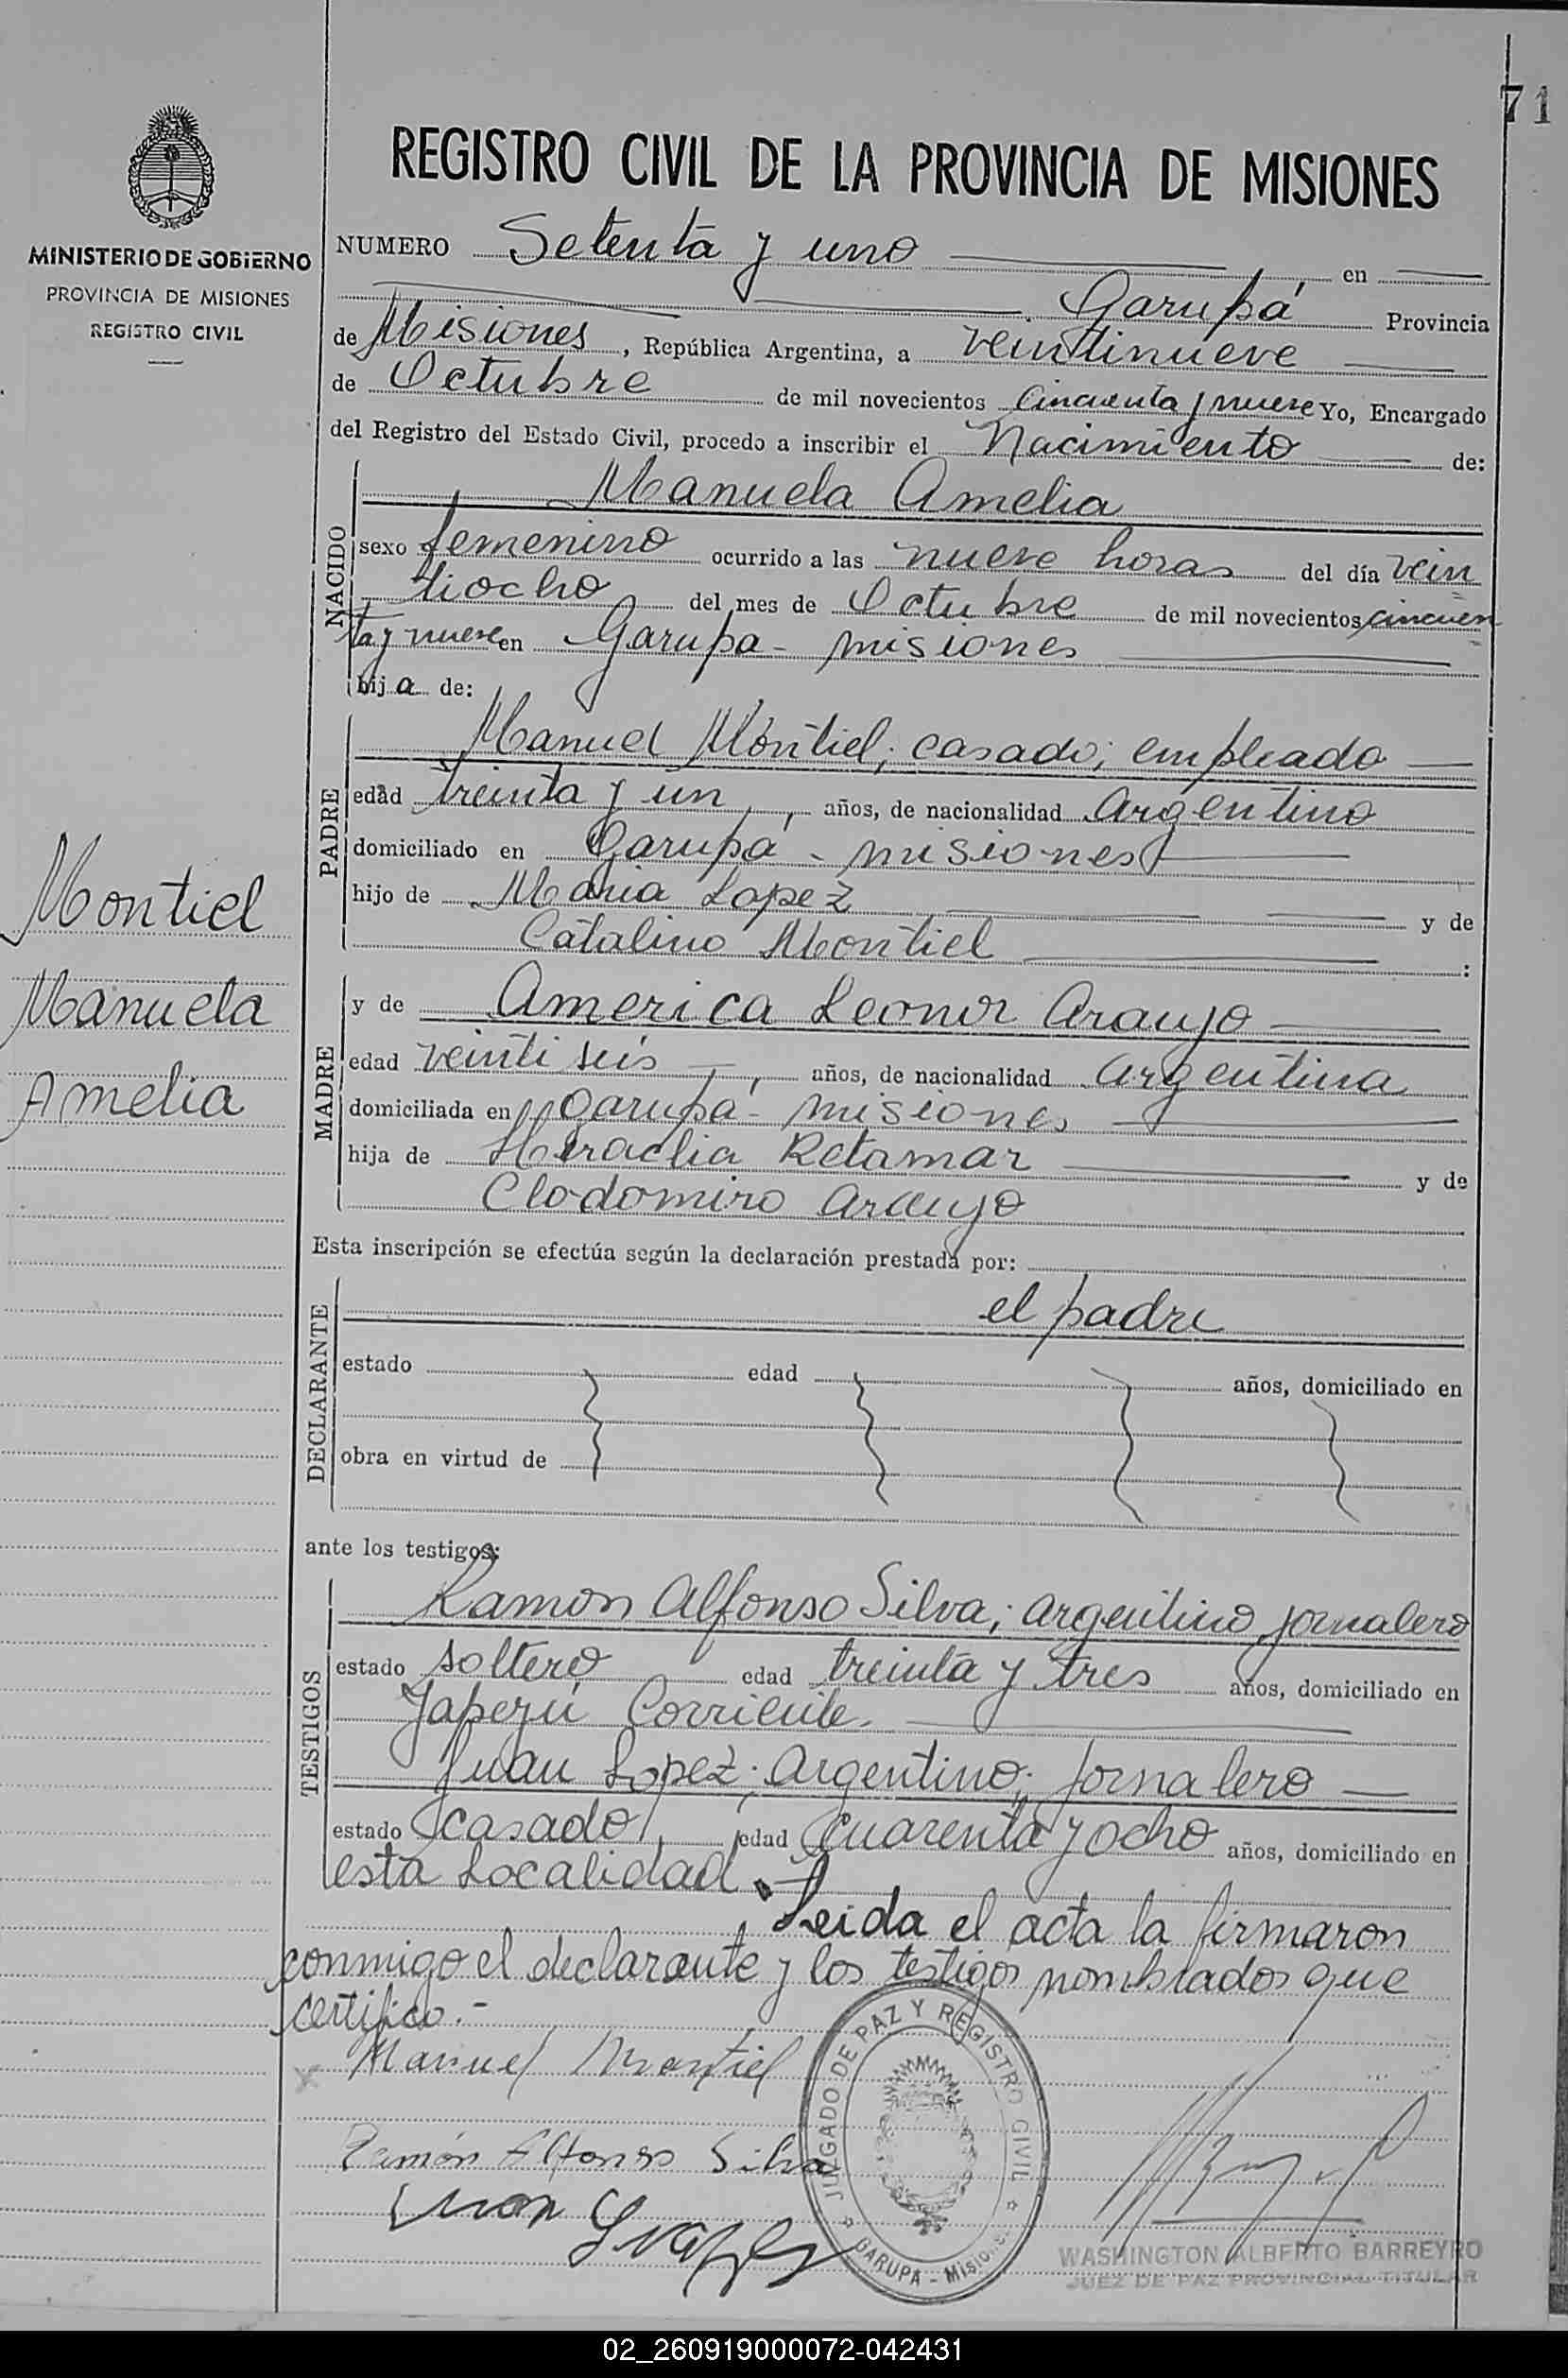 71
REGISTRO CIVIL DE LA PROVINCIA DE MISIONES
MINISTERIO DE GOBIERNO
PROVINCIA DE MISIONES
REGISTRO CIVIL
NUMERO Setenta y uno, en
Garupá Provincia
de Misiones, República Argentina, a veintinueve
de Octubre de mil novecientos Cincuenta y nueve Yo, Encargado
del Registro del Estado Civil, procedo a inscribir el Nacimiento de:
NACIDO
Manuela Amelia
sexo femenino ocurrido a las nueve horas del día vein
tiocho del mes de Octubre de mil novecientos cincuen
ta y nueve en Garupa - misiones
hija de:
PADRE
Manuel Montiel; casado; empleado
edad treinta y un, años, de nacionalidad Argentino
domiciliado en Garupá - misiones
hijo de Maria Lopez y de
Catalino Montiel :
Montiel
Manuela
Amelia
MADRE
y de America Leonor Araujo
edad veinti seis, años, de nacionalidad argentina
domiciliada en Garupá - misiones
hija de Heraclia Retamar y de
Clodomiro Araujo
Esta inscripción se efectúa según la declaración prestada por:
DECLARANTE
el padre
estado edad años, domiciliado en
obra en virtud de
ante los testigos:
TESTIGOS
Ramon Alfonso Silva; argentino jornalero
estado soltero edad treinta y tres años, domiciliado en
Yapeyú Corriente.
Juan Lopez; Argentino; Jornalero
estado casado, edad cuarenta y ocho años, domiciliado en
esta Localidad.
Leida el acta la firmaron
conmigo el declarante y los testigos nombrados que
certifico.-
x Manuel Montiel
Ramón Alfonso Silva
Juan Lopez
JUZGADO DE PAZ Y REGISTRO CIVIL
GARUPÁ - Misiones
WASHINGTON ALBERTO BARREYRO
JUEZ DE PAZ PROVINCIAL TITULAR
02_260919000072-042431